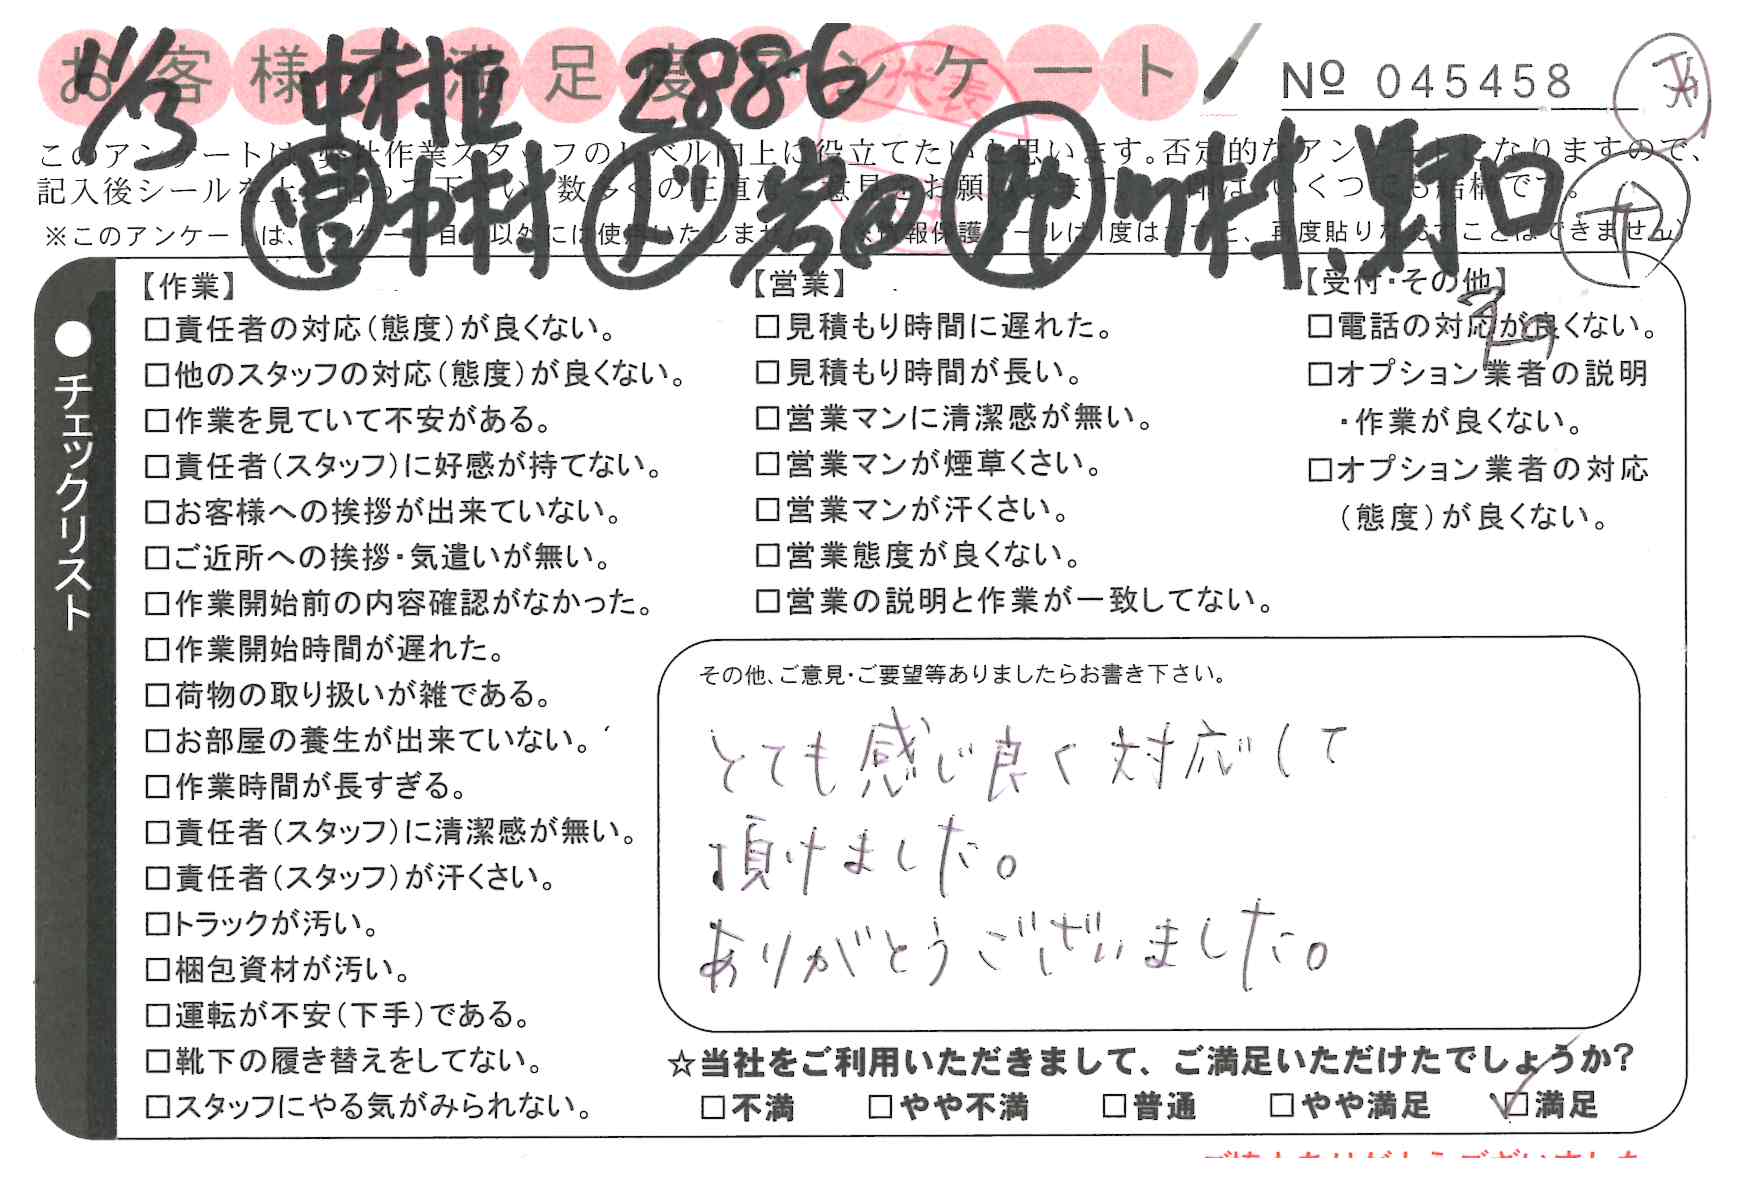 お客様の満足度アンケート
11/3 中村植 2886
№ 045458
代表
このアンケートは、弊社作業スタッフのレベル向上に役立てたいと思います。否定的なアンケートになりますので、
記入後シールを上に貼って下さい。数多くの正直なご意見をお願い
いくつでも結構です。
営 中村 ド 岩田 助 川村、野口
チェックリスト
【作業】
□責任者の対応(態度)が良くない。
□他のスタッフの対応(態度)が良くない。
□作業を見ていて不安がある。
□責任者(スタッフ)に好感が持てない。
□お客様への挨拶が出来ていない。
□ご近所への挨拶・気遣いが無い。
□作業開始前の内容確認がなかった。
□作業開始時間が遅れた。
□荷物の取り扱いが雑である。
□お部屋の養生が出来ていない。
□作業時間が長すぎる。
□責任者(スタッフ)に清潔感が無い。
□責任者(スタッフ)が汗くさい。
□トラックが汚い。
□梱包資材が汚い。
□運転が不安(下手)である。
□靴下の履き替えをしてない。
□スタッフにやる気がみられない。
【営業】
□見積もり時間に遅れた。
□見積もり時間が長い。
□営業マンに清潔感が無い。
□営業マンが煙草くさい。
□営業マンが汗くさい。
□営業態度が良くない。
□営業の説明と作業が一致してない。
【受付・その他】
□電話の対応が良くない。
□オプション業者の説明
・作業が良くない。
□オプション業者の対応
(態度)が良くない。
その他、ご意見・ご要望等ありましたらお書き下さい。
とても感じ良く対応して
頂けました。
ありがとうございました。
☆当社をご利用いただきまして、ご満足いただけたでしょうか?
□不満 □やや不満 □普通 □やや満足 ☑満足